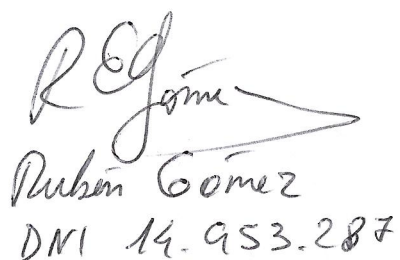 R E Gómez
Rubén Gómez
DNI 14.953.287